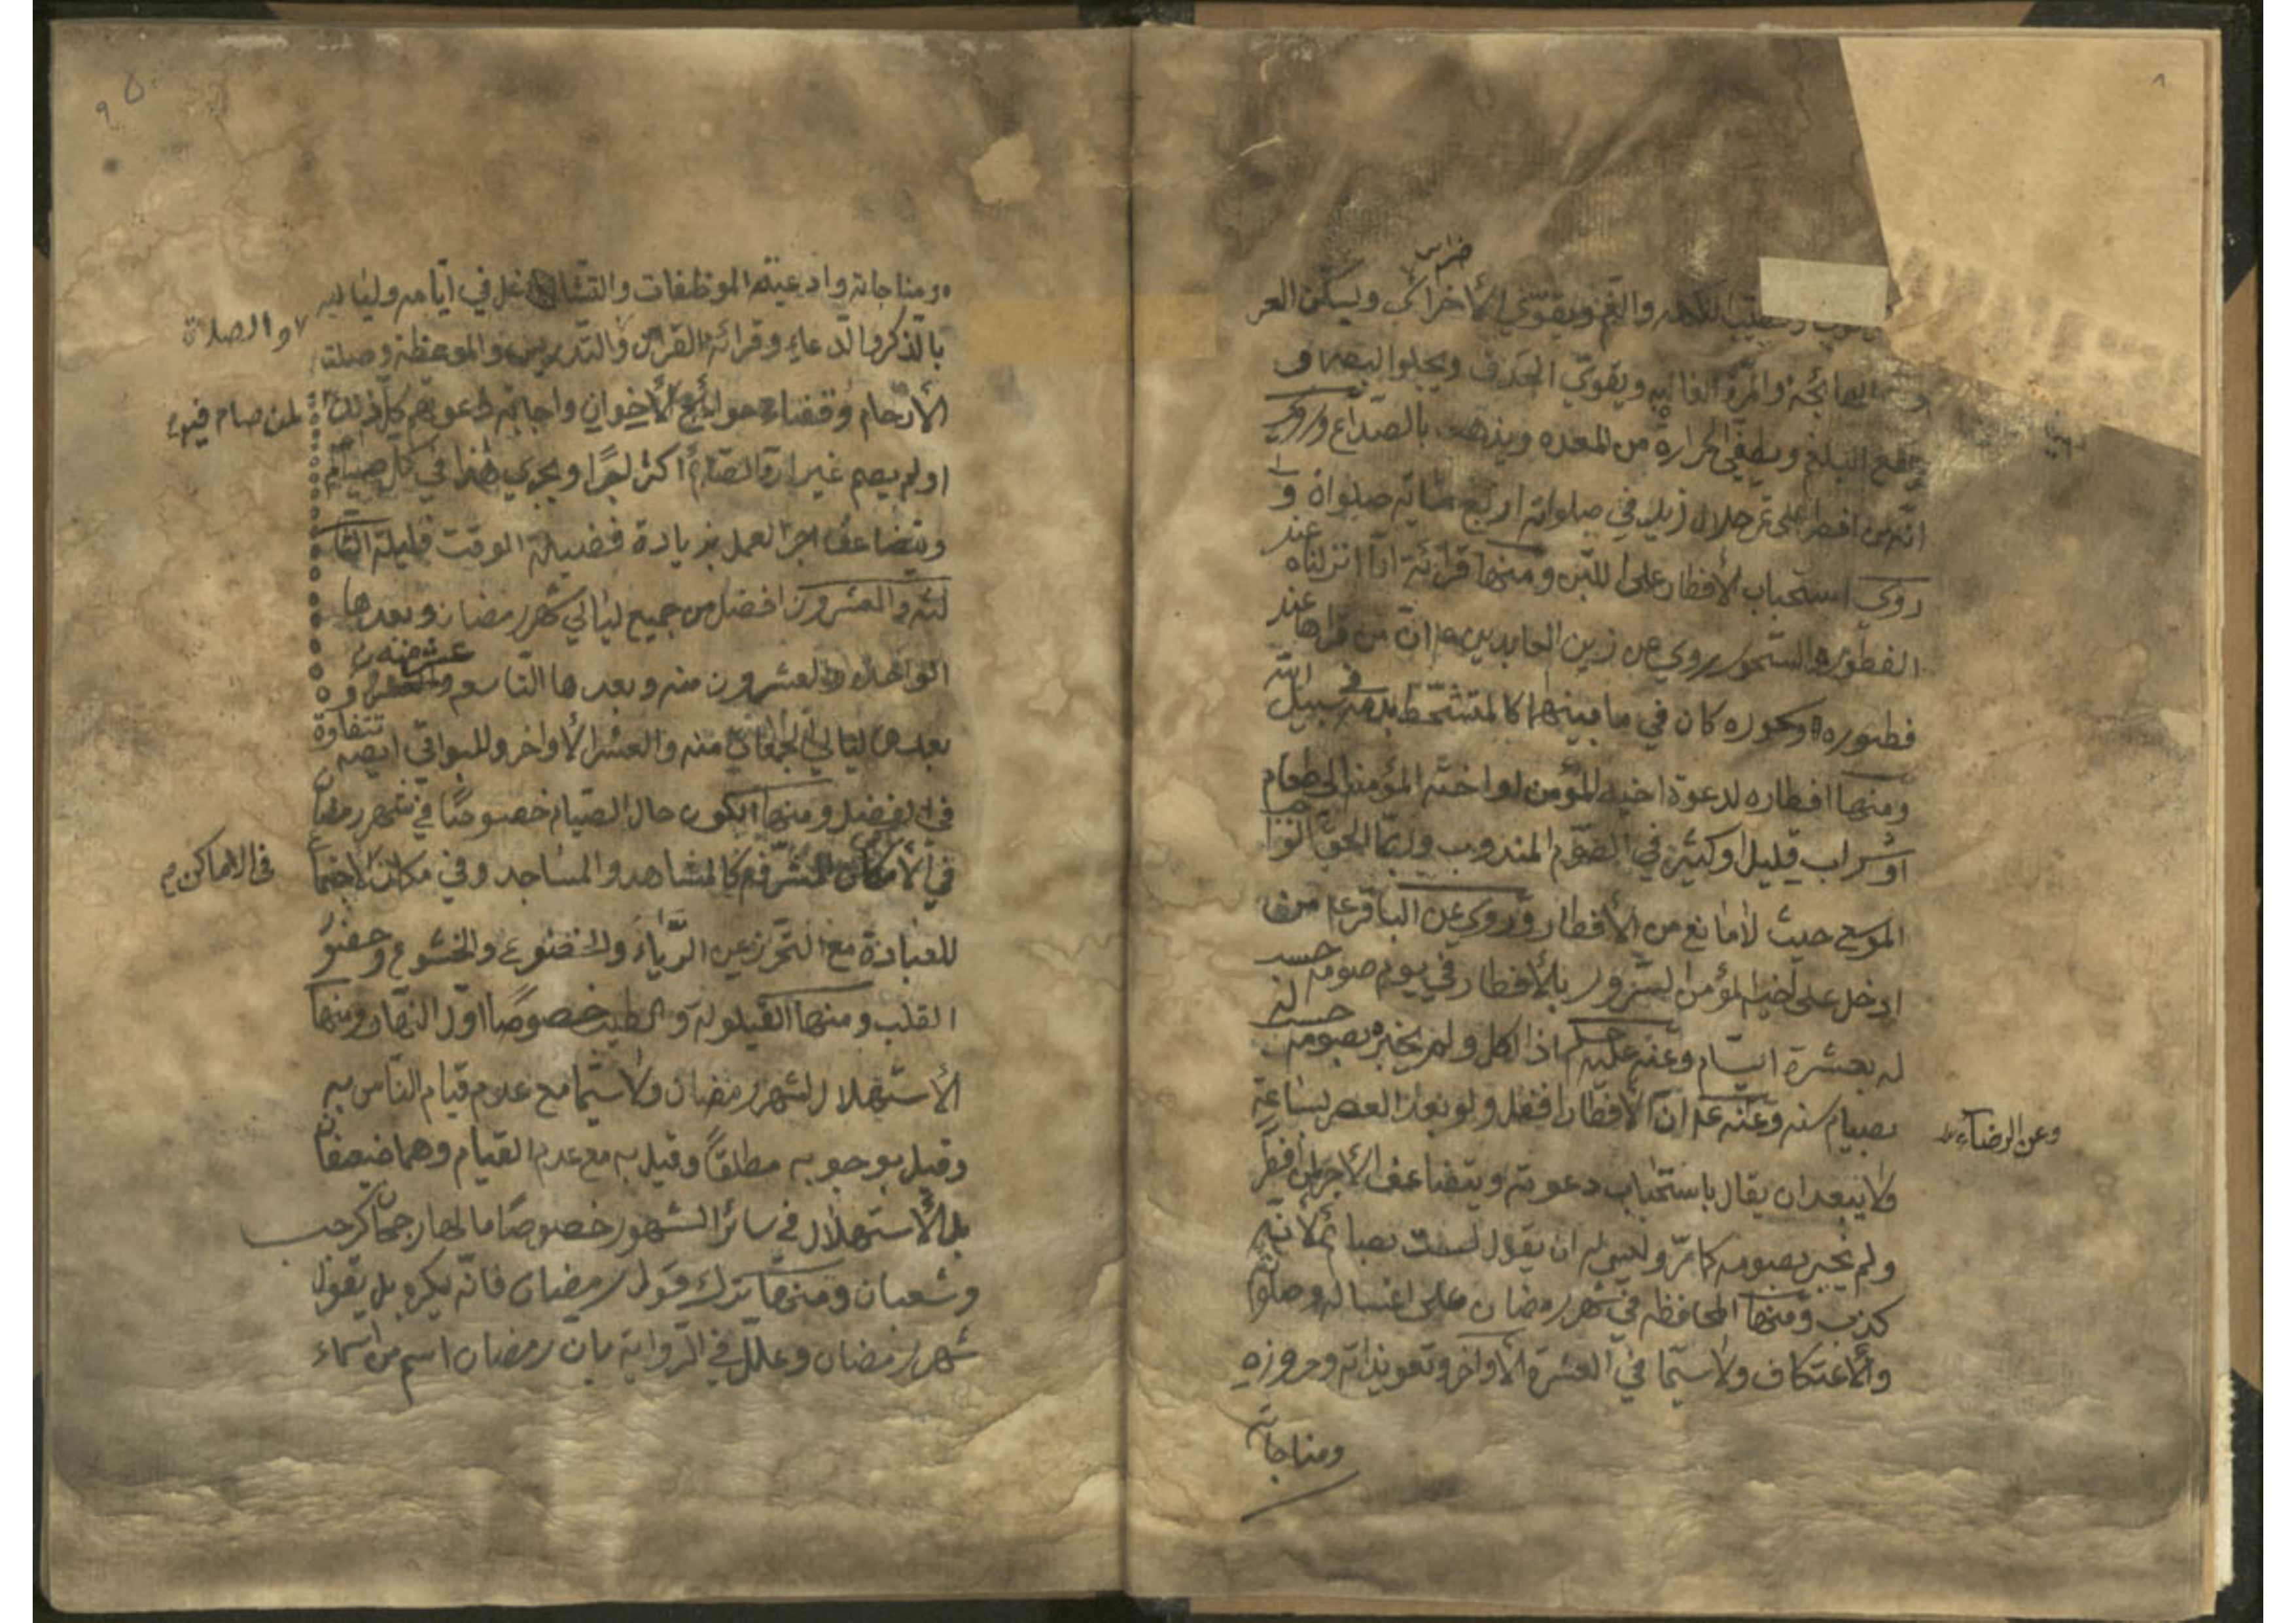 ضراس
ويطيب النكهه والفم ويقوي الأضراس ويسكن العر
الهائجة والمرة الغالبه ويقوي الحدق ويجلوا البصر و
يقطع البلغم ويطفي الحرارة من المعده ويذهب بالصداع وروي
انه من افطر على تمر حلال زيد في صلواته اربع مائة صلواة و
روي استحباب الأفطار على اللبن ومنها قرائة انا انزلناه عند
الفطور والسحور روي عن زين العابدين ان من قراها عند
فطوره وسحوره كان في ما بينهما كالمتشحط بدمه في سبيل الله
ومنها افطاره لدعوة اخيه المؤمن او اخته المؤمنة الى طعام
او شراب قليل او كثير في الصوم المندوب وربما الحق الواجب
الموسع حيث لا مانع من الأفطار وروي عن الباقر ع من
ادخل على اخيه المؤمن السرور بالأفطار في يوم صومه حسب
له بعشرة ايام وعنه عليه اذا اكل ولم يخبره بصومه حسب له
بصيام سنه وعنه ع ان الأفطار افضل ولو بعد العصر بساعة
وعن الرضا ع
ولا يبعد ان يقال باستحباب دعوته ويتضاعف الأجر لمن افطر
ولم يخبر بصومه كما مر وليس له ان يقول لست بصائم لأنه
كذب ومنها المحافظه في شهر رمضان على اغساله وصلواته
والأعتكاف ولا سيما في العشرة الأواخر وتعويذاته وحروزه
ومناجاته
ومناجاته وادعيته الموظفات والتشاغل في ايامه ولياليه
بالذكر والدعاء وقرائة القرآن والتدريس والموعظة وصلة
والصلاة
الأرحام وقضاء حوائج الأخوان واجابة دعوتهم كل ذلك
لمن صام فيه
او لم يصم غير ان الصائم اكثر اجرا ويجري هذا في كل صيام
ويتضاعف اجر العمل بزيادة فضيلة الوقت فليلة الثا
لثه والعشرون افضل من جميع ليالي شهر رمضان وبعدها
الواحده والعشرون منه وبعدها التاسع عشر منه و
بعدها ليالي الجمعات منه والعشر الأواخر وللبواقي ايضه تتفاوة
في الفضل ومنها الكون حال الصيام خصوصا في شهر رمضان
في الأمكان المشرفه كالمشاهد والمساجد وفي مكان الاجتماع
في الاماكن
للعبادة مع التحرز عن الرياء والخضوع والخشوع وحضور
القلب ومنها القيلولة والطيب خصوصا اول النهار ومنها
الأستهلال لشهر رمضان ولا سيما مع عدم قيام الناس به
وقيل بوجوبه مطلقا وقيل به مع عدم القيام وهما ضعيفان
بل الأستهلال في سائر الشهور خصوصا ما لها رجحان كرجب
وشعبان ومنها ترك قول رمضان فانه يكره بل يقول
شهر رمضان وعلل في الرواية بان رمضان اسم من اسماء